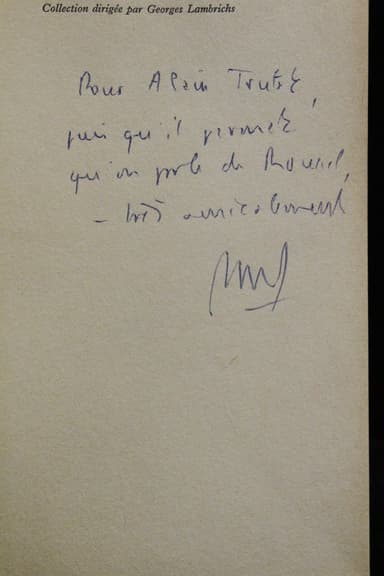 Collection dirigée par Georges Lambrichs
Pour Alain Trutat,
puisqu'il permet
qu'on parle de Roussel,
– très amicalement